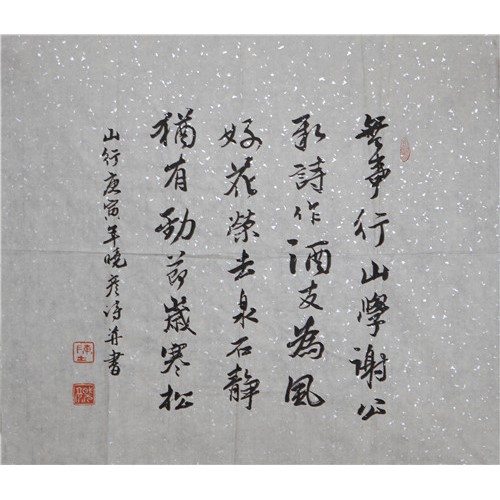 無事行山學謝公
詩作酒友為風
好花榮去泉石靜
猶有勁節歲寒松
山行庚寅年曉彥詩并書